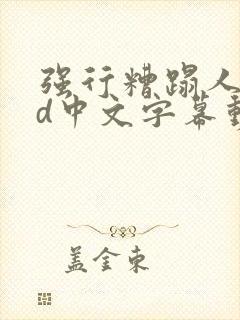 强行糟蹋人
d中文字幕動
盖金东